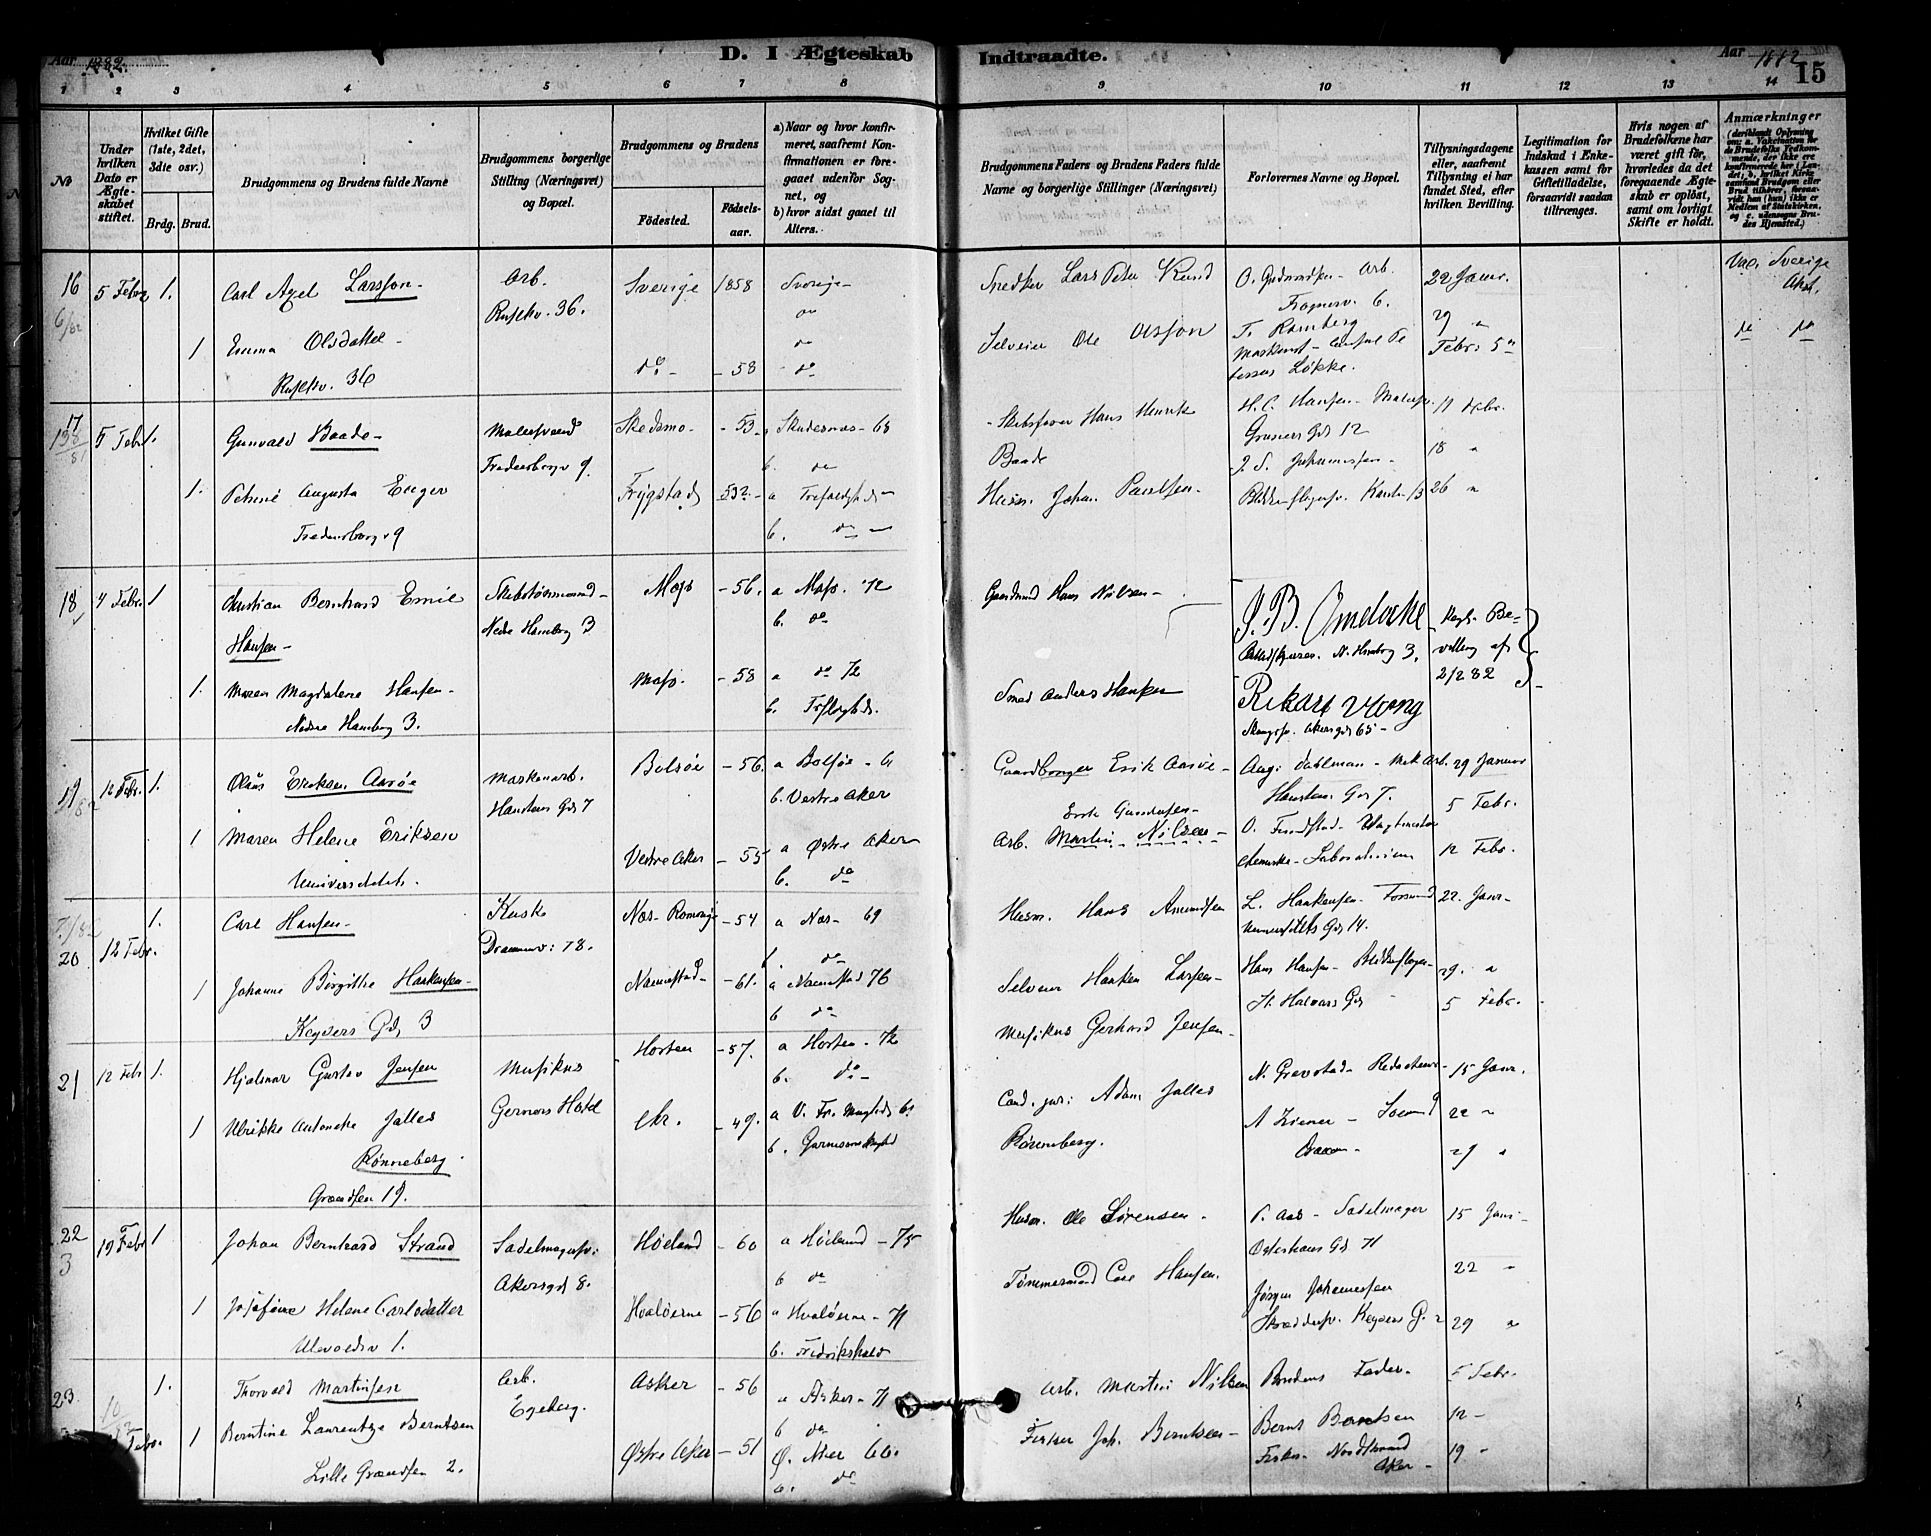 Aar 1882.
D. I Ægteskab
Indtraadte.
Aar 1882
15
1 2 3 4 5 6 7 8 9 10 11 12 13 14
No
Under hvilken Dato er Ægteskabet stiftet.
Hvilket Gifte (1ste, 2det, 3die osv.)
Brdg. Brud.
Brudgommens og Brudens fulde Navne
Brudgommens borgerlige Stilling (Næringsvei) og Bopæl.
Brudgommens og Brudens
Födested.
Födsels-aar.
a) Naar og hvor konfirmeret, saafremt Konfirmationen er foregaaet udenfor Sognet, og
b) hvor sidst gaaet til Alters.
Brudgommens Faders og Brudens Faders fulde Navne og borgerlige Stillinger (Næringsvei)
Forlovernes Navne og Bopæl.
Tillysningsdagene eller, saafremt Tillysning ei har fundet Sted, efter hvilken Bevilling.
Legitimation for Indskud i Enkekassen samt for Giftetilladelse, forsaavidt saadan tiltrænges.
Hvis nogen af Brudefolkene har været gift før, hvorledes da det foregaaende Ægteskab er oplöst, samt om lovligt Skifte er holdt.
Anmærkninger
(deriblandt Oplysning om: a. Vakcination for de Brudefolks Vedkommende, der ikke ere konfirmerede her i Landet; b. hvilket Kirkesamfund Brudgom eller Brud tilhörer, forsaavidt han (hun) ikke er Medlem af Statskirken, og c. udensogns Brudes Hjemsted.)
16 5 Febr 1. Carl Axel Larsson - Arb. Sverige 1858 Sverige Snedker Lars Peter 22 Janr. Vac. Sverige
6/82 Ruselkv. 36. do Frognerv. 6. Akst.
1 Emma Olsdatter - do Selveier Ole Olsson T. Romberg 29 " do do
Ruselkv. 36 do. - - 58 - do Løkke. Febr. 5 "
17 5 Febr 1. Gunvald Baade - Malersvend Skedsmo - - 53 - a Skudesnæs - 68 - Skibsfører Hans Henrik H. C. Hansen - Malersv. 11 Febr.
138/81 Fredensborgv 9. b. do Baade Gruners Gd 12 18 "
1. Petrine Augusta Enger Frygstad - 53 - a Trefoldigheds - Husm. Johan Paulsen - J. S. Johannessen - 26 "
Fredensborgv 9 b. do -
18 4 Febr. 1 Christian Bernhard Emil Skibstømmermand - Moss - 56. a Moss. 72 Gaardmand Hans Nilsen - J. B. Kgl. Be-
Hansen - Nedre Hamborg 3 b. do N. Hamborg 3. villing af
1. Maren Magdalene Hansen - Moss. - 58 a do 72 Smed Anders Hansen Rikard 2/2 82
Nedre Hamborg 3. b. Akersgd 65 -
19 12 Febr. 1. Olaus Eriksen Aarøe Maskinarb. Bolsøe - 56. a Bolsøe - Gaardbruger Erik Aarøe - Aug. Dahlman - Mek Arb. 29 Januar
/82 Hausmanns Gd 7 b. Vestre Aker Erik Gundersen - Gd 7. 5 Febr.
1 Maren Helene Eriksen Vestre Aker - 55 a Østre Aker Arb. Martin Nilsen - O. 12 Febr.
Universitetet. b. do Chemiske - Laboratorium
7/82 1. Carl Hansen - Kusk Næs - Romerige - 54 a Næs - 69 Husm. Hans Amundsen L. Haakensen - Formand 22. Janr -
20 12 Febr. Drammensv: 78. b do Universitets Gd 14.
1 Johanne Birgitthe Haakensen - Nannestad - - 61. a Nannestad 76 Selveier Haaken Larsen - Hans Hansen - Blikkenslager - 29. "
Keysers Gd 3 b do St. Halvars Gd 5 Febr.
21 12 Febr 1. Hjalmar Gustav Jensen Musikus Horten - 57. a Horten - 72 Musikus Gerhard Jensen - N. Grevstad - Redacteur - 15 Janr.
Gerners Hotel b. do -
1 Ulrikke Antonette Jalles Chr. - 49. a V. Fr. Menigheds Cand. jur: Adam Jalles A Ziener - 22 "
Rønneberg. b. Garnisonsmenighed Rønneberg. 29 "
Grændsen 19.
22 19 Febr 1 Johan Bernhard Strand Sadelmagersv: Høeland - 60 a Høeland - 75 Husm. Ole Sørensen - P. Aas - Sadelmager 15 Janr -
3 Akersgd 8. b do Osterhaus Gd 11 22 "
1 Josefine Helene Carlsdatter Hvaløerne - 56 a Hvaløerne - 71 Tømmermand Carl Hansen. Jørgen Johannessen 29 "
Ulevoldsv 1. b. Fredrikshald Skræddersv. Keysers G. 2
23. 1. Thorvald Martinsen Arb. Asker - 56 a Asker - 71 Arb. Martin Nilsen Brudens Fader - 5 Febr.
10/82 Egeberg. b do
Febr. 1 Berntine Laurentze Berntsen Østre Aker - 51 Ø. Aker 66. Fisker Joh. Berntsen - Bernt Berntsen 12 -
Lille Grændsen 2. b. do Fisker. Nordstrand Aker - 19 "